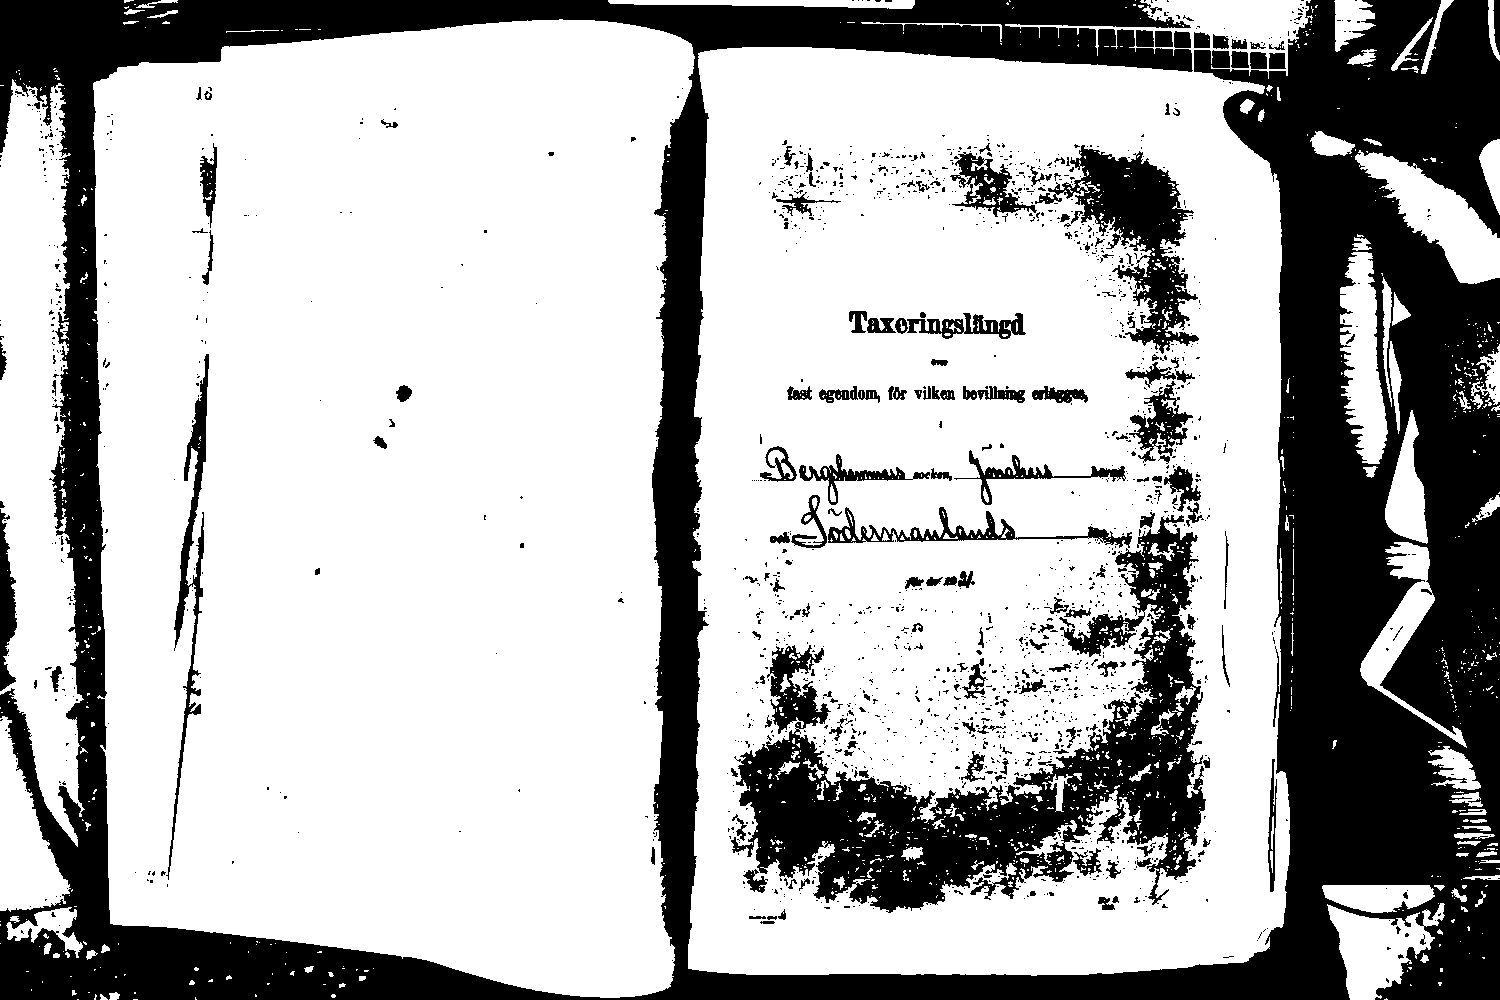 16
15
Taxeringslängd
över
fast egendom, för vilken bevillning erlägges,
i
Bergshammars socken, Jönåkers härad
och Södermanlands län
för år 1921.